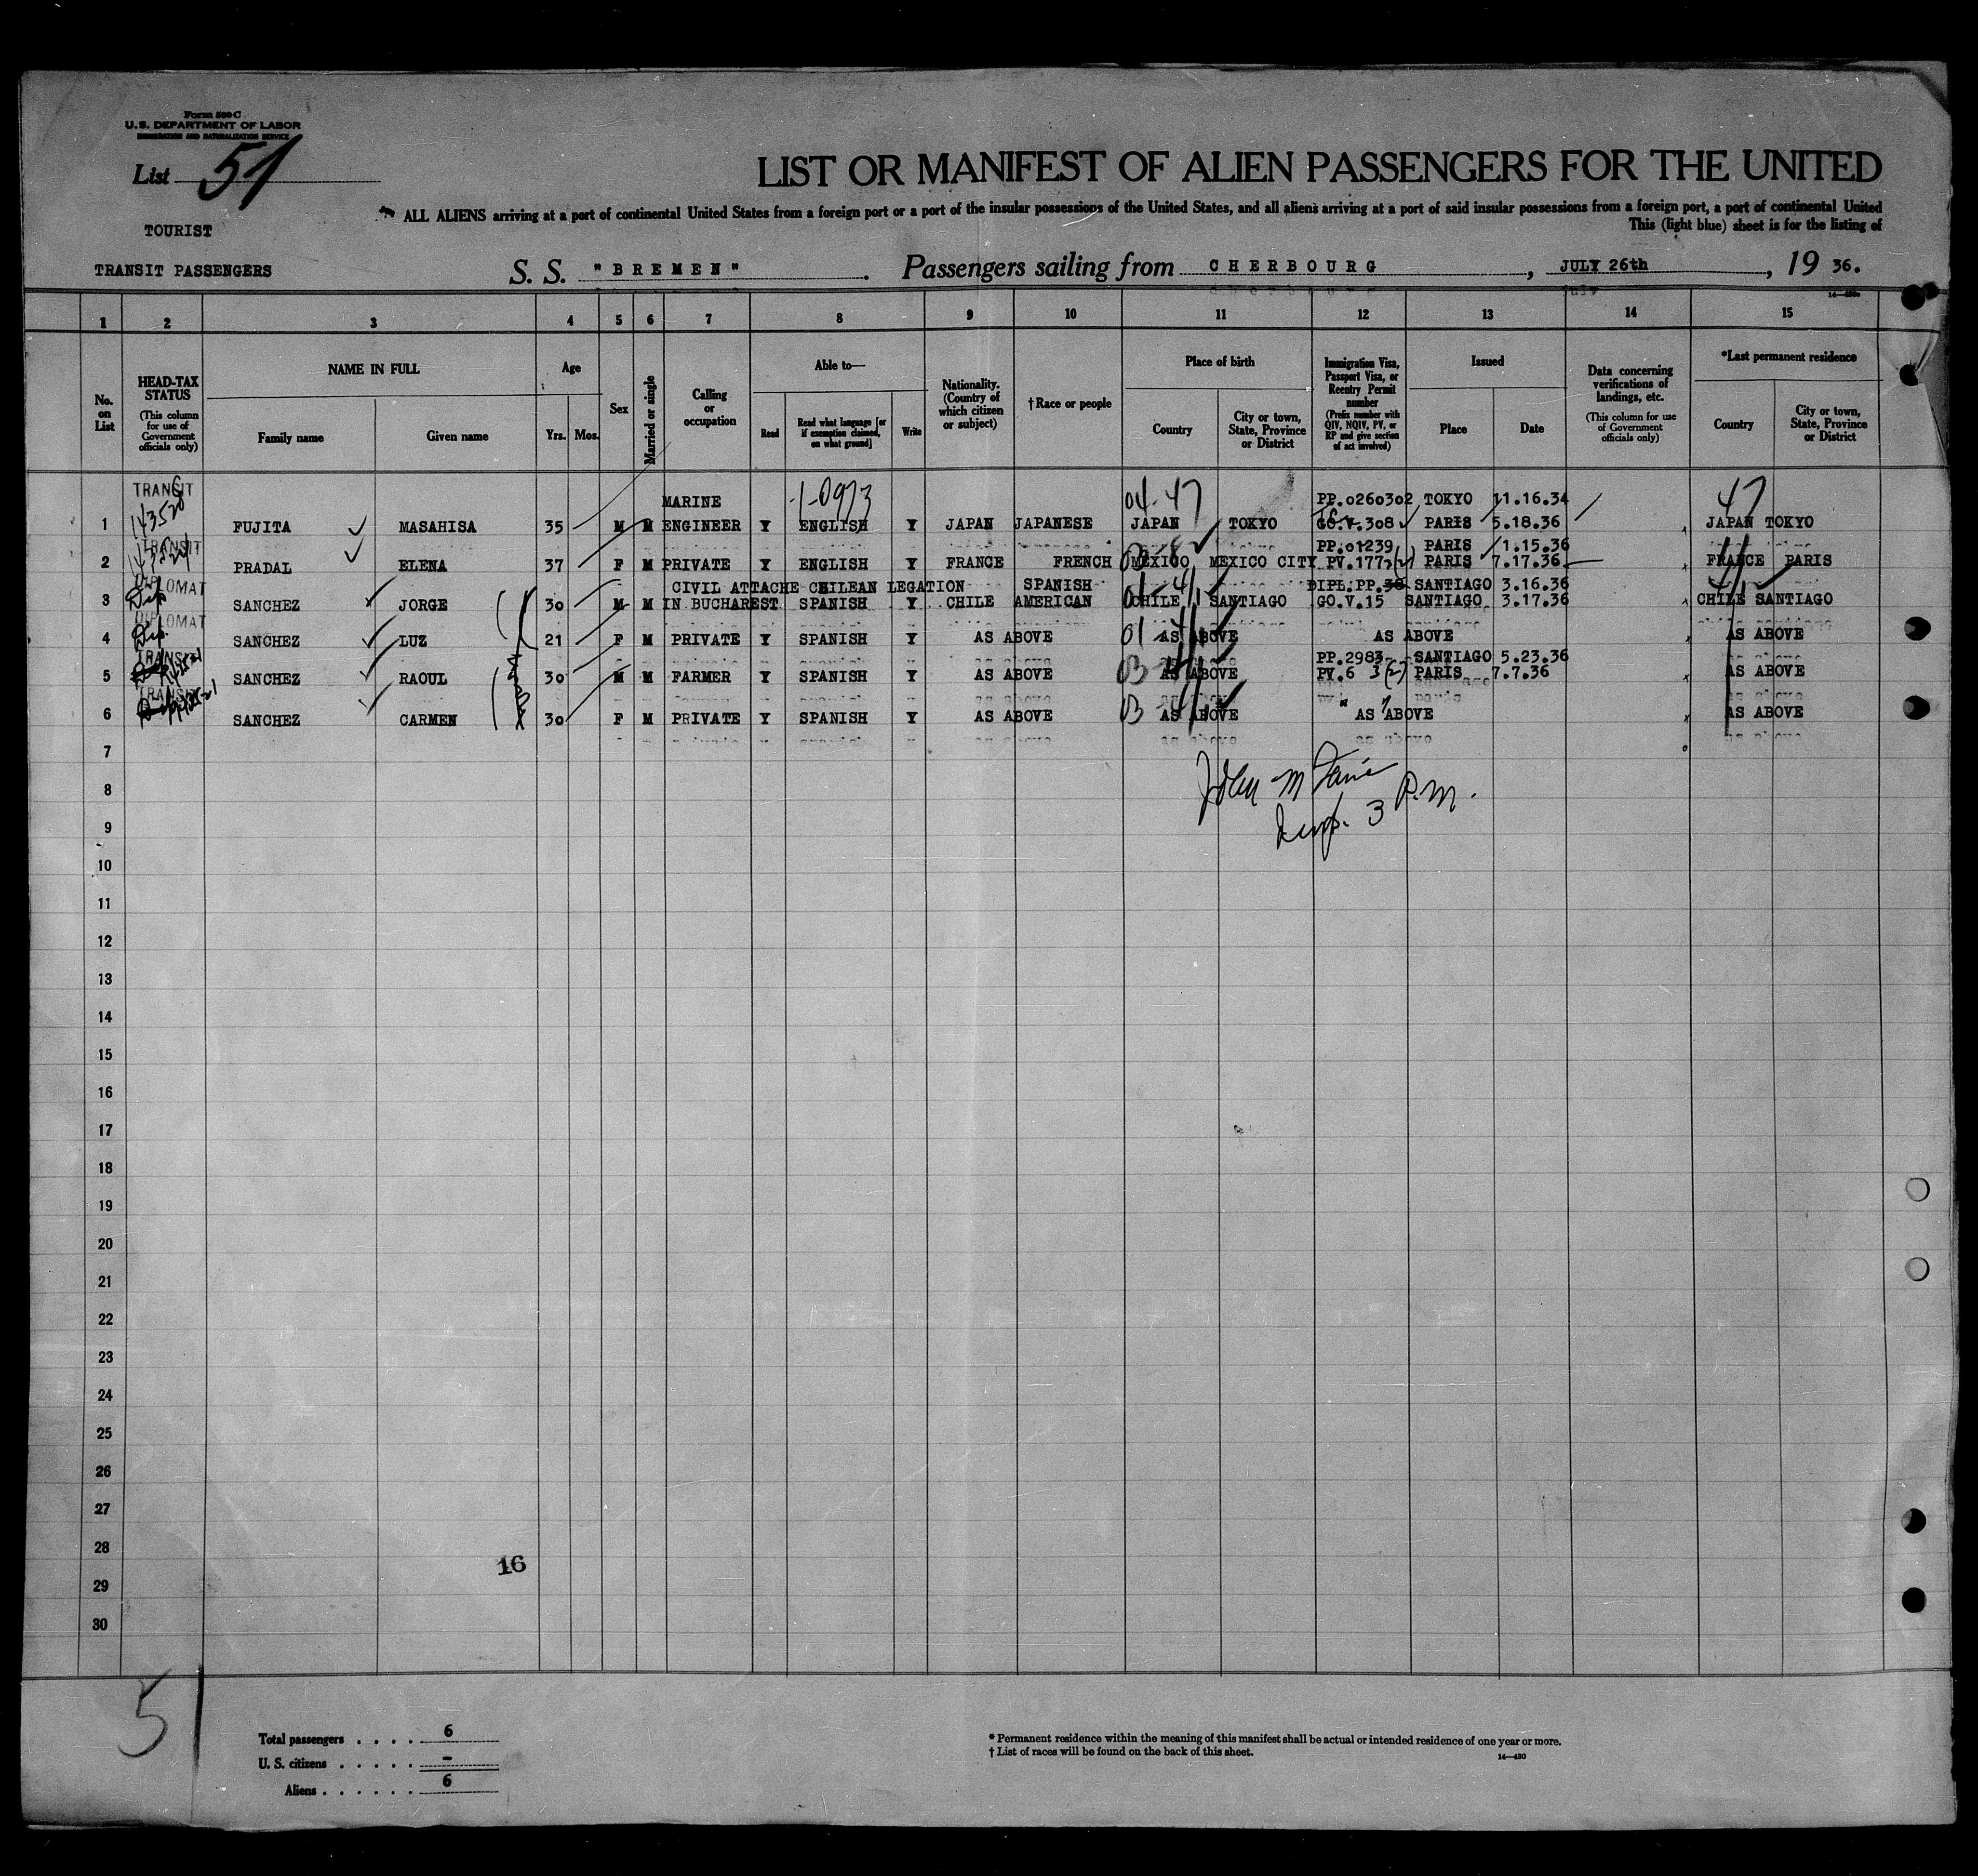 Form 500 C
U.S. DEPARTMENT OF LABOR
IMMIGRATION AND NATURALIZATION SERVICE
List 51
LIST OR MANIFEST OF ALIEN PASSENGERS FOR THE UNITED
ALL ALIENS arriving at a port of continental United States from a foreign port or a port of the insular possessions of the United States, and all aliens arriving at a port of said insular possessions from a foreign port, a port of continental United
This (light blue) sheet is for the listing of
TOURIST
TRANSIT PASSENGERS
S. S. "BREMEN". Passengers sailing from CHERBOURG, JULY 26th, 19 36.
1 2 3 4 5 6 7 8 9 10 11 12 13 14 15
No. on List
HEAD-TAX STATUS (This column for use of Government officials only)
NAME IN FULL Family name Given name
Age Yrs. Mos.
Sex
Married or single
Calling or occupation
Able to— Read Read what language [or if exemption claimed, on what ground] Write
Nationality. (Country of which citizen or subject)
†Race or people
Place of birth Country City or town, State, Province or District
Immigration Visa, Passport Visa, or Reentry Permit number (Prefix number with QIV, NQIV, PV, or RP and give section of act involved)
Issued Place Date
Data concerning verifications of landings, etc. (This column for use of Government officials only)
*Last permanent residence Country City or town, State, Province or District
TRANSIT MARINE 1-0973 04-47 PP.0260302 TOKYO 11.16.34 47
1 FUJITA MASAHISA 35 M M ENGINEER Y ENGLISH Y JAPAN JAPANESE JAPAN TOKYO GO.V.308 PARIS 5.18.36 JAPAN TOKYO
TRANSIT PP.01239 PARIS 1.15.36
2 PRADAL ELENA 37 F M PRIVATE Y ENGLISH Y FRANCE FRENCH MEXICO MEXICO CITY PV.1773(2) PARIS 7.17.36 FRANCE PARIS
DIPLOMAT CIVIL ATTACHE CHILEAN LEGATION SPANISH DIPL.PP.38 SANTIAGO 3.16.36
3 Dip SANCHEZ JORGE 30 M M IN BUCHAREST SPANISH Y CHILE AMERICAN CHILE SANTIAGO GO.V.15 SANTIAGO 3.17.36 CHILE SANTIAGO
DIPLOMAT
4 Dip. SANCHEZ LUZ 21 F M PRIVATE Y SPANISH Y AS ABOVE AS ABOVE AS ABOVE AS ABOVE
TRANSIT PP.2983 SANTIAGO 5.23.36
5 SANCHEZ RAOUL 30 M M FARMER Y SPANISH Y AS ABOVE AS ABOVE PV.6 3(2) PARIS 7.7.36 AS ABOVE
TRANSIT
6 SANCHEZ CARMEN 30 F M PRIVATE Y SPANISH Y AS ABOVE AS ABOVE AS ABOVE AS ABOVE
7
8 John M
9 Insp. 3 P.M.
10
11
12
13
14
15
16
17
18
19
20
21
22
23
24
25
26
27
28
16
29
30
51
Total passengers . . . . 6
U. S. citizens . . . . . –
Aliens . . . . . . 6
* Permanent residence within the meaning of this manifest shall be actual or intended residence of one year or more.
† List of races will be found on the back of this sheet.
14—430